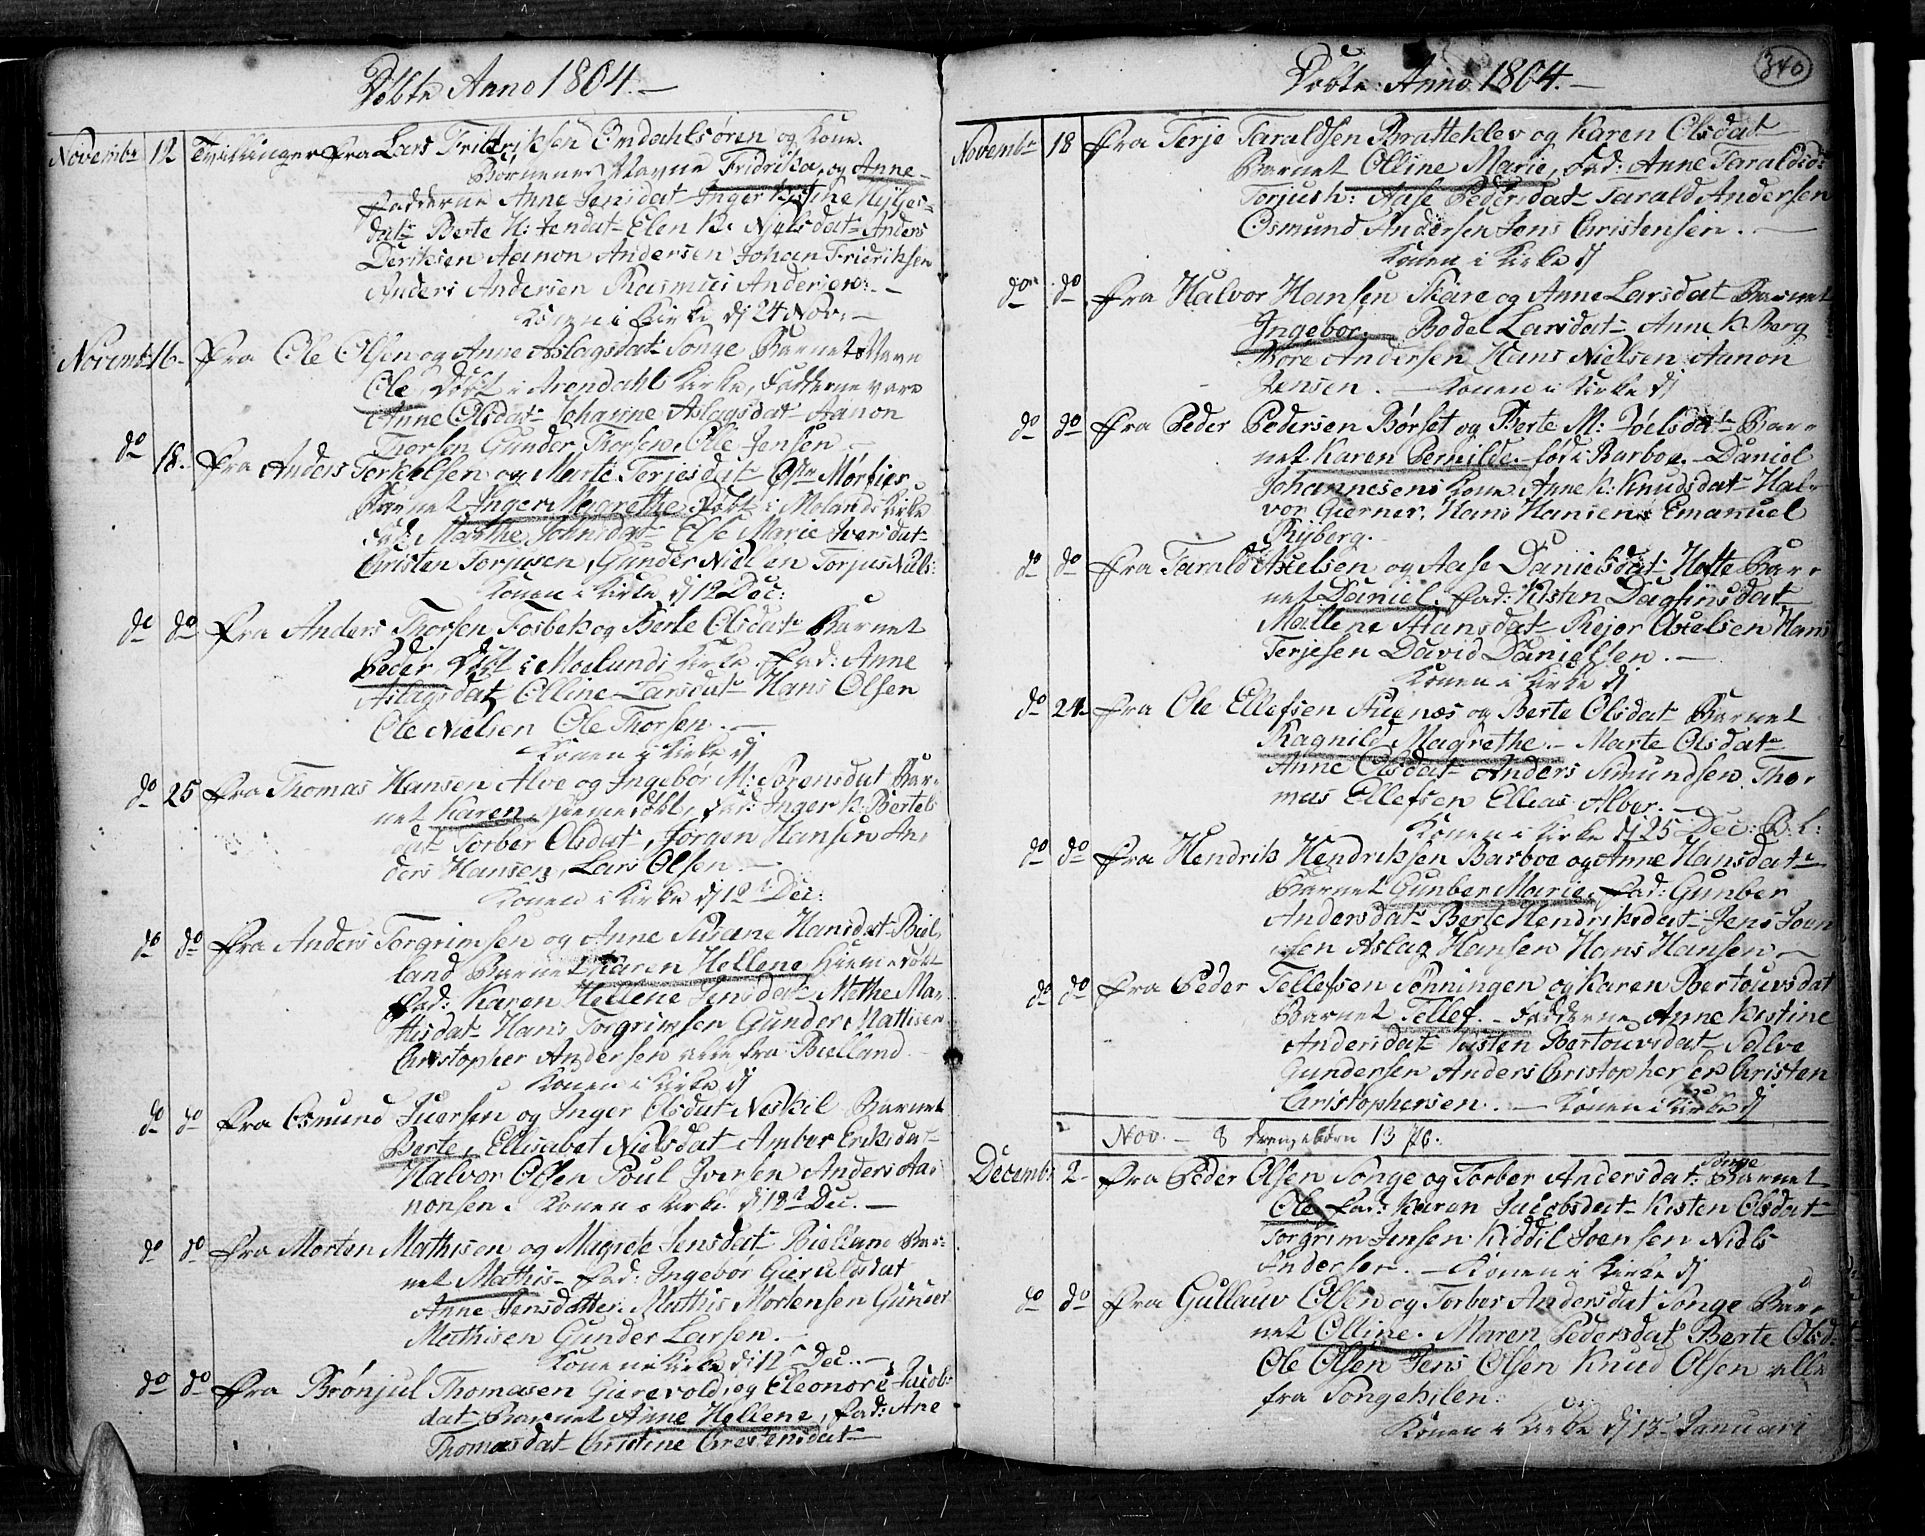 Döbte Anno 1804.
Novembr 12 Tvillinger fra Lars Fridriksen Omdahlsören og Kone.
Börnenes Navne Fridrikа, og Anne
Fadderne Anne Jensdat Inger Kistine
dat Berte H: Jensdat Elen K. Njelsdat Anders
Deriksen Aanon Andersen Johan Fridriksen
Anders Andersen Rasmus Andersen.
Konen i Kirke dj 24 Nov.
Novemb 16 fra Ole Olsen og Anne Aslagsdat Songe Barnets Navn
Ole, Döbt i Arendahls Kirke, Fadderne vare
Anne Olsdat Johanne Aslagsdat Aanon
Thorsen Gunder Thorsen, Ole Jensen
do 18. fra Anders Torkelsen og Marte Terjesdat Östr Mörfier
Barnet Inger Margrethe Döbt i Molands Kirke
Fad: Marthe Johnsdat Else Marie Iversdat
Christen Torjusen, Gunder Nielsen Torjus Niels:
Konen i Kirke dj 12 Dec:
do do fra Anders Thorsen Fosbek og Berte Olsdat Barnet
Peder Döbt i Moelands Kirke. Fad: Anne
Aslagsdat Olline Larsdat Hans Olsen
Ole Nielsen Ole Thorsen.
Konen i Kirke dj
do 25 fra Thomas Hansen Alve og Ingebör M: Sörensdat Bar-
net Karen, hiemedöbt, Fad: Inger K: Bertels
dat Torber Olsdat, Jörgen Hansen An-
ders Hansen, Lars Olsen.
Konen i Kirke dj 12 Dec:
do do fra Anders Torgrimsen og Anne Susane Hansdat Biel-
land Barnet Karen Hellene hiemedöbt
Fad: Karen Hellene Jensdat Methe Ma-
thisdat Hans Torgrimsen Gunder Mathisen
Christopher Andersen alle fra Bielland
Konen i Kirke dj
do do fra Osmund Iversen og Inger Olsdat Neskil Barnet
Berte, Ellisabet Nielsdat Amber Eriksdat
Halvor Olsen Poul Iversen Anders Aa-
nonsen. Konen i Kirke dj 12 Dec.
do do fra Morten Mathisen og Magrete Jensdat Bielland Bar-
net Mathis Fad: Ingebor Gieruldsdat
Anne Jensdatter Mathis Mortensen Gunder
Mathisen Gunder Larsen.
Konen i Kirke dj 12 Dec.
do do fra Brönjul Thomasen Gierevold og Eleonore Jacobs
dat Barnet Anne Hellene, Fad: Ane
Thomasdat Christine Crestensdat
Döbte Anno 1804.
340
Novembr 18 fra Terje Taraldsen Bratteklev og Karen Olsdat
Barnet Olline Marie, Fad: Anne Taraldsd:
Torjush: Aase Pedersdat Tarald Andersen
Osmund Andersen Jens Christensen.
Konen i Kirke dj
do do fra Halvor Hansen Skare og Anne Larsdat Barnet
Ingebor. Bodel Larsdat Anne K. Berg
Tore Andersen Hans Nielsen Aanon
Jensen. Konen i Kirke dj
do do fra Peder Pedersen Börset og Berte M: Joelsdat Bar-
net Karen Pernilde. föd i Barboe. Daniel
Johannesens Kone Anne K: Knudsdat Hal-
vor Gierner, Hans Hansen Emanuel
Riiberg.
do do fra Tarald Axelsen og Aase Danielsdat Hette Bar-
net Daniel. Fad: Kisten Dagfinsdat
Mallene Hansdat Rejer Axelsen Hans
Terjesen David Danielsen.
Konen i Kirke dj
do 24 fra Ole Ellefsen Stuenæs og Berte Olsdat Barnet
Ragnild Magrethe. Marte Olsdat
Anne Olsdat Anders Simundsen Tho-
mas Ellefsen Ellias Alber.
Konen i Kirke dj 25 Dec: B. L:
do do fra Hendrik Hendriksen Barboe og Anne Hansdat
Barnet Gunber Marie, Fad: Gunber
Andersdat Berte Hendriksdat Jens Joen
sen Aslag Hansen Hans Hansen
do do fra Peder Tellefsen Sönningen og Karen Bertouvsdat
Barnet Tellef. Fadderne Anne Kistine
Andersdat Kisten Bertouvsdat Salve
Gundersen Anders Cristophersen Christen
Christophersen. Konen i Kirke dj
Nov. 8 drengebörn 13 Pb.
Decemb: 2 fra Peder Olsen Songe og Torber Andersdat Songe Barnet
Ole Fad: Karen Jacobsdat Kisten Olsdat
Torgrim Jensen Kiddil Joensen Niels
Andersen. Konen i Kirke dj
do do fra Gullauv Olsen og Torber Andersdat Songe Bar-
net Olline. Maren Pedersdat Berte Olsd:
Ole Olsen Jens Olsen Knud Olsen alle
fra Songehilen.
Konen i Kirke dj 13 Januari